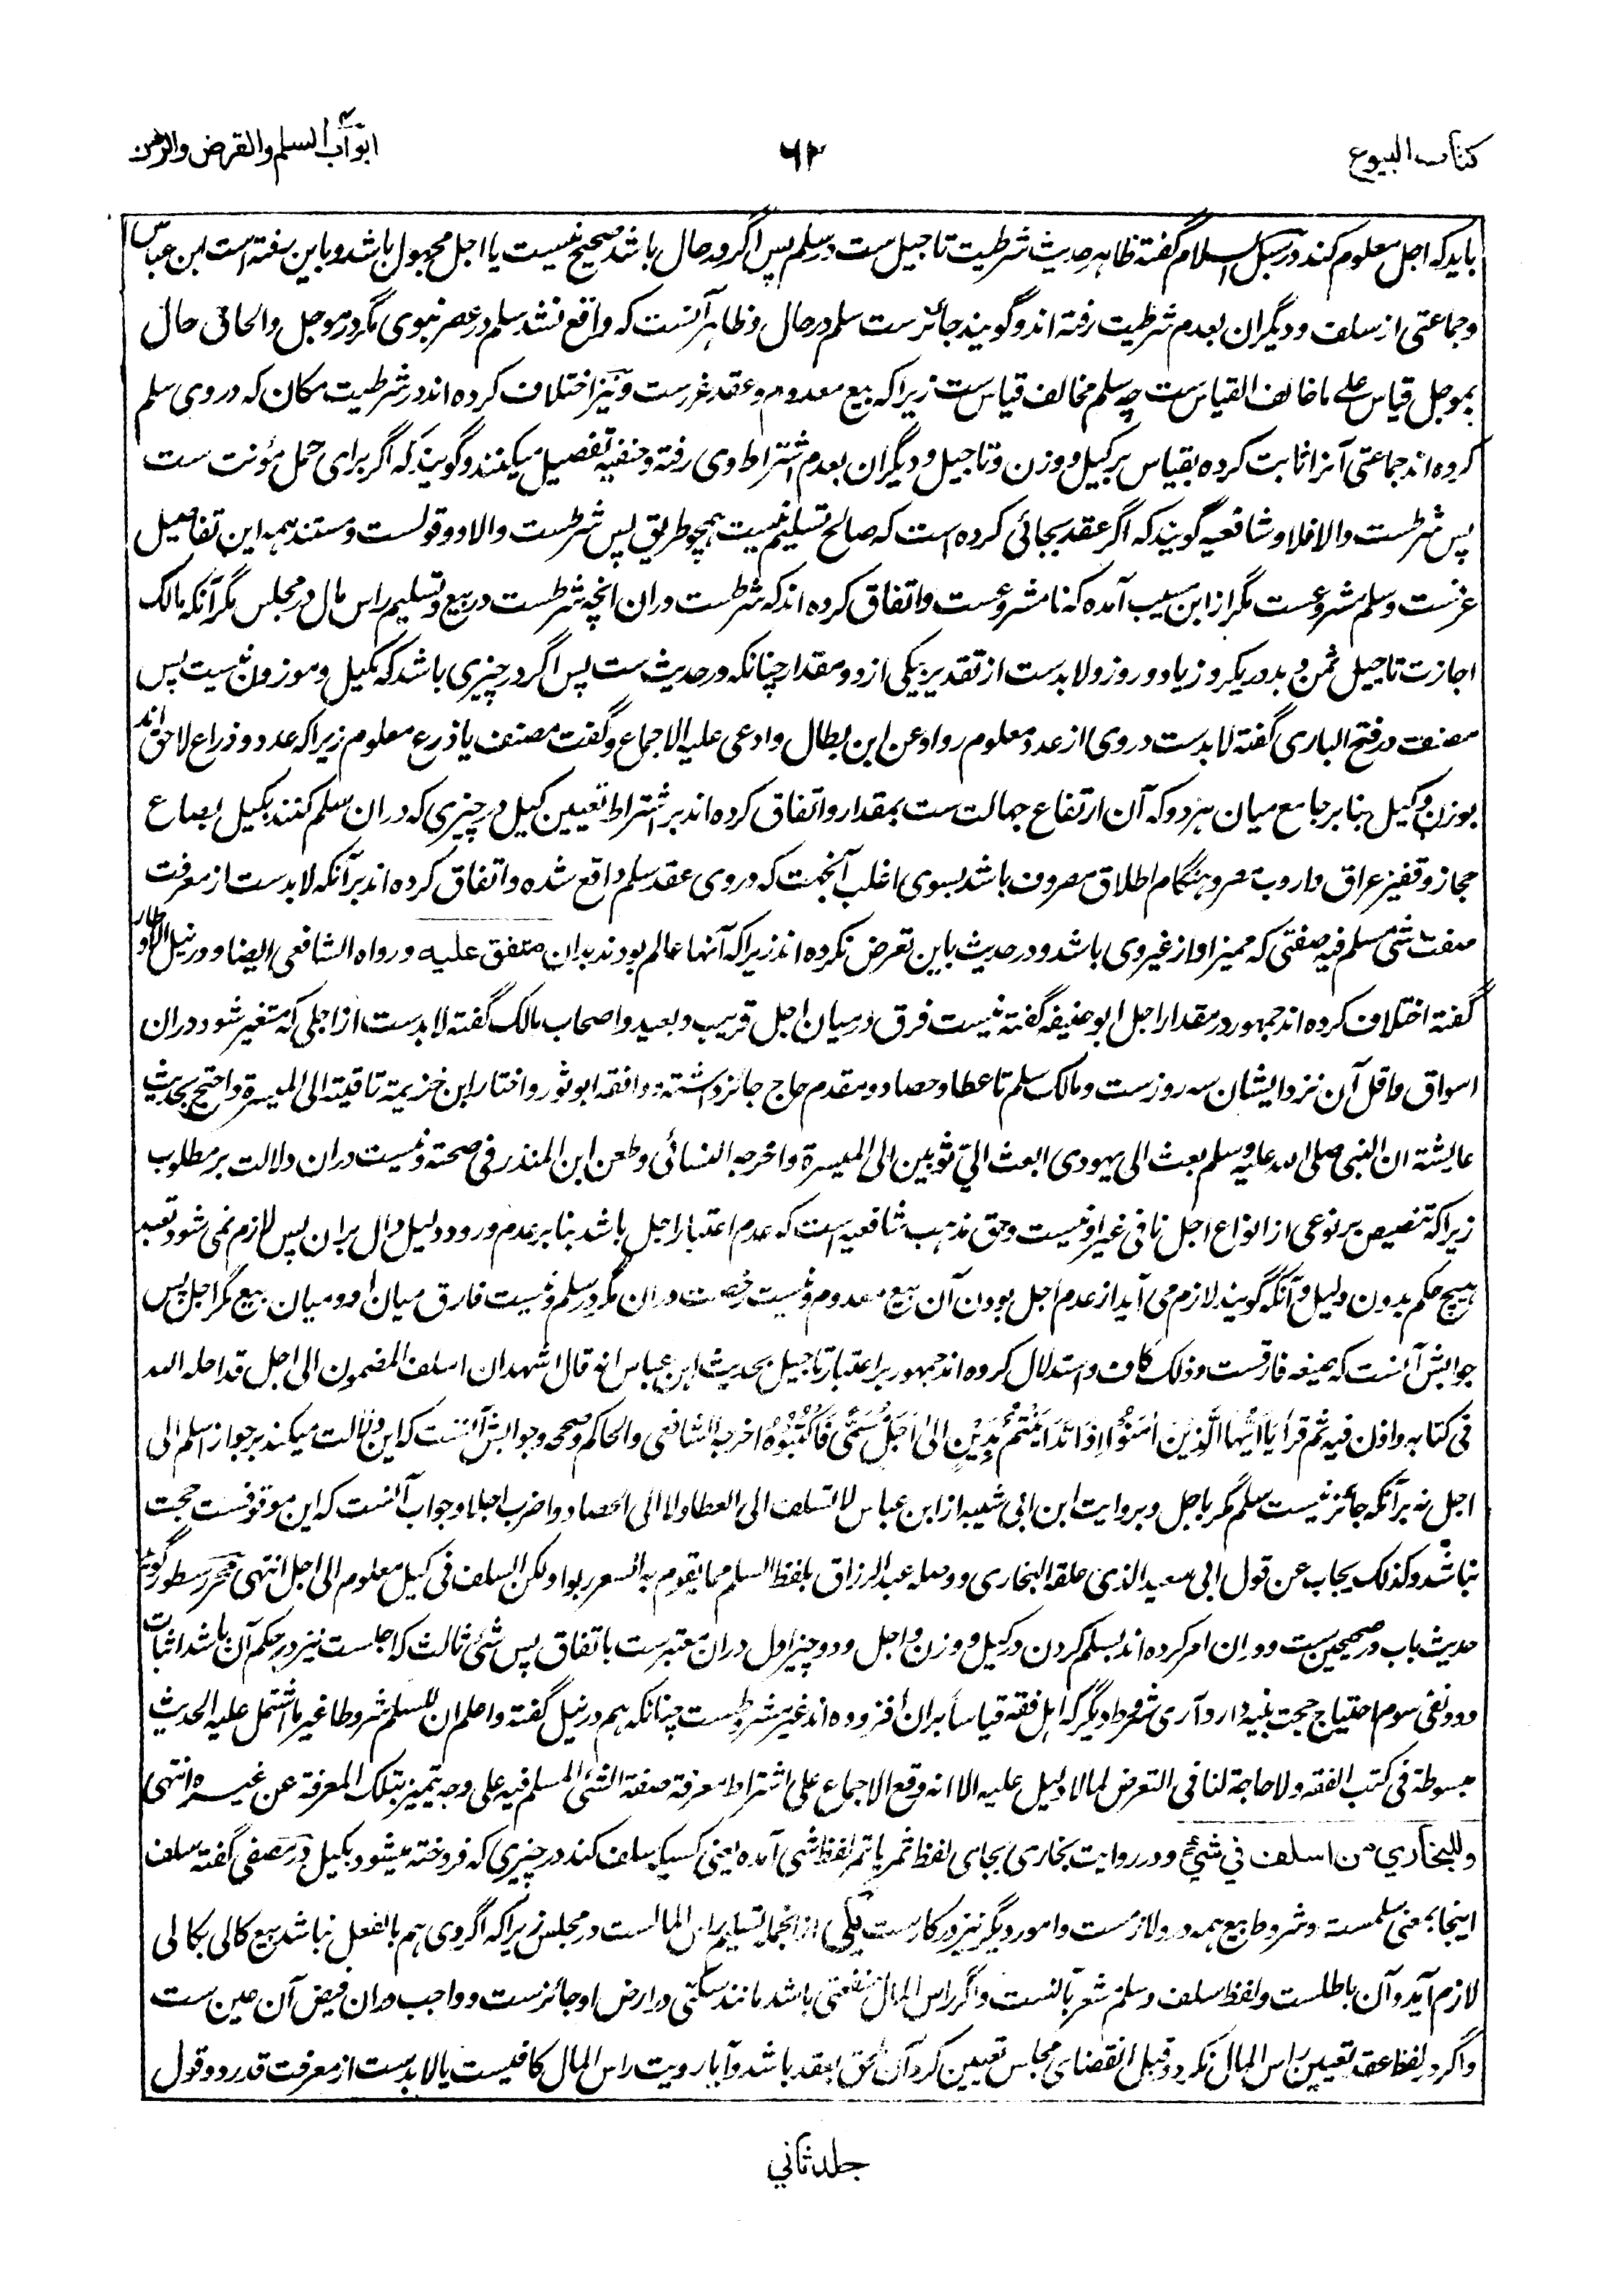 کتاب البیوع
۶۲
ابواب السلم والقرض والرهن
باید که اجل معلوم کند در سبل السلام گفته ظاهر حدیث شرطیت تاجیل ست در سلم پس اگر در حال باشد صحیح نیست یا اجل مجهول باشد و باین رفته است ابن عباس
و جماعتی از سلف و دیگران بعدم شرطیت رفته اند و گویند جائز ست سلم در حال و ظاهر آنست که واقع نشد سلم در عصر نبوی مگر در موجل و الحاق حال
بموجل قیاس علے ما خالف القیاس ست چه سلم مخالف قیاس ست زیرا که بیع معدوم و عقد غرر ست و نیز اختلاف کرده اند در شرطیت مکان که در وی سلم
کرده اند جماعتی آنرا ثابت کرده بقیاس بر کیل و وزن و تاجیل و دیگران بعدم اشتراط وی رفته و حنفیه تفصیل میکنند و گویند که اگر برای حمل مؤنت ست
پس شرطست والا فلا و شافعیه گویند که اگر عقد بجائی کرده است که صالح تسلیم نیست همچو طریق پس شرطست والا دو قولست و مستند همه این تفاصیل
عرفست و سلم مشروعست مگر از ابن مسیب آمده که نا مشروعست و اتفاق کرده اند که شرطست دران انچه شرطست در بیع و تسلیم راس مال در مجلس مگر آنکه مالک
اجازت تاجیل ثمن بدو یکروز یا دو روز و لابدست از تقدیر بیکی از دو مقدار چنانکه در حدیث ست پس اگر در چیزی باشد که مکیل و موزون نیست پس
مصنف در فتح الباری گفته لا بدست در وی از عدد معلوم رواه عن ابن بطال وادعی علیه الاجماع و گفت مصنف یا ذرع معلوم زیرا که عدد و ذراع لاحق اند
بوزن و کیل بنا بر جامع میان هر دو که آن ارتفاع جهالت ست بمقدار و اتفاق کرده اند بر اشتراط تعیین کیل در چیزی که دران سلم کنند بکیل بصاع
حجاز و قفیز عراق و اردب مصر و هنگام اطلاق مصروف باشد بسوی اغلب آنجهت که در وی عقد سلم واقع شده و اتفاق کرده اند بر آنکه لا بدست از معرفت
صفت شی مسلم فیه صفتی که ممیز او از غیر وی باشد و در حدیث باین تعرض نکرده اند زیرا که آنها عالم بودند بدان متفق علیه و رواه الشافعی ایضا و در نیل الاوطار
گفته اختلاف کرده اند جمهور در مقدار اجل ابو حنیفه گفته نیست فرق درمیان اجل قریب و بعید و اصحاب مالک گفته لا بدست از اجلی که متغیر شود دران
اسواق و اقل آن نزد ایشان سه روزست و مالک سلم تا عطا و حصاد و مقدم حاج جائز داشته و وافقه ابو ثور و اختار ابن خزیمة تاقیته الی المیسرة و احتج بحدیث
عایشة ان النبی صلی الله علیه وسلم بعث الی یهودی ابعث الیّ ثوبین الی المیسرة واخرجه النسائی وطعن ابن المنذر فی صحته و نیست دران دلالت بر مطلوب
زیرا که تنصیص بر نوعی از انواع اجل نافی غیر او نیست و حق مذهب شافعیه است که عدم اعتبار اجل باشد بنا بر عدم ورود دلیل دال بران پس لازم نمی شود تعبد
هیچ حکم بدون دلیل و آنکه گویند لازم می آید از عدم اجل بودن آن بیع معدوم و نیست رخصت دران مگر در سلم و نیست فارق میان او و میان بیع مگر اجل پس
جوابش آنست که صیغه فارقست وذلک کاف و استدلال کرده اند جمهور بر اعتبار تاجیل بحدیث ابن عباس انه قال اشهد ان السلف المضمون الی اجل قد احله الله
فی کتابه واذن فیه ثم قرأ یَا اَیُّهَا الَّذِیْنَ اٰمَنُوْا اِذَا تَدَایَنْتُمْ بِدَیْنٍ اِلیٰ اَجَلٍ مُسَمًّی فَاکْتُبُوْهُ اخرجه الشافعی والحاکم وصححه و جوابش آنست که این دلالت میکند بر جواز سلم الی
اجل نه بر آنکه جائز نیست سلم مگر باجل و بروایت ابن ابی شیبه از ابن عباس لا تسلف الی العطا ولا الی الحصاد واضرب اجلا و جواب آنست که این موقوفست حجت
نباشد وکذلک یجاب عن قول ابی سعید الذی علقه البخاری ووصله عبد الرزاق بلفظ السلم مما یقوم به السعر ربوا ولکن السلف فی کیل معلوم الی اجل انتهی محرر سطور گوید
حدیث باب در صحیحین ست و دران امر کرده اند بسلم کردن در کیل و وزن و اجل و دو چیز اول دران معتبرست باتفاق پس شئ ثالث که اجلست نیز در حکم آن باشد اثبات
دو و نفی سوم احتیاج حجت بنیه دارد آری شروط دیگر که اهل فقه قیاساً بران افزوده اند غیر شرطست چنانکه هم در نیل گفته واعلم ان للسلم شروطا غیر ما اشتمل علیه الحدیث
مبسوطة فی کتب الفقه ولا حاجة لنا فی التعرض لما لا دلیل علیه الا انه وقع الاجماع علی اشتراط معرفة صفة الشئ المسلم فیه علی وجه یتمیز بتلک المعرفة عن غیره انتهی
وللبخاري من اسلف في شيء و در روایت بخاری بجای لفظ ثمر یا تمر لفظ شی آمده یعنی کسیکه سلف کند در چیزی که فروخته میشود بکیل در مصفی گفته سلف
اینجا بمعنی سلمست و شروط بیع همه در و لازمست و امور دیگر نیز در کارست یکی ازانجمله تسلیم راس المالست در مجلس زیرا که اگر وی هم بالفعل نباشد بیع کالی بکالی
لازم آید و آن باطلست و لفظ سلف و سلم مشعر بآنست و اگر راس المال منفعتی باشد مانند سکنی در ارض او جائزست و واجب دران قبض آن عین ست
و اگر در لفظ عقد تعیین راس المال نکرد و قبل انقضای مجلس تعیین کرد آن ملحق بعقد باشد و آیا رویت راس المال کافیست یا لابدست از معرفت قدر دو قول
جلد ثاني